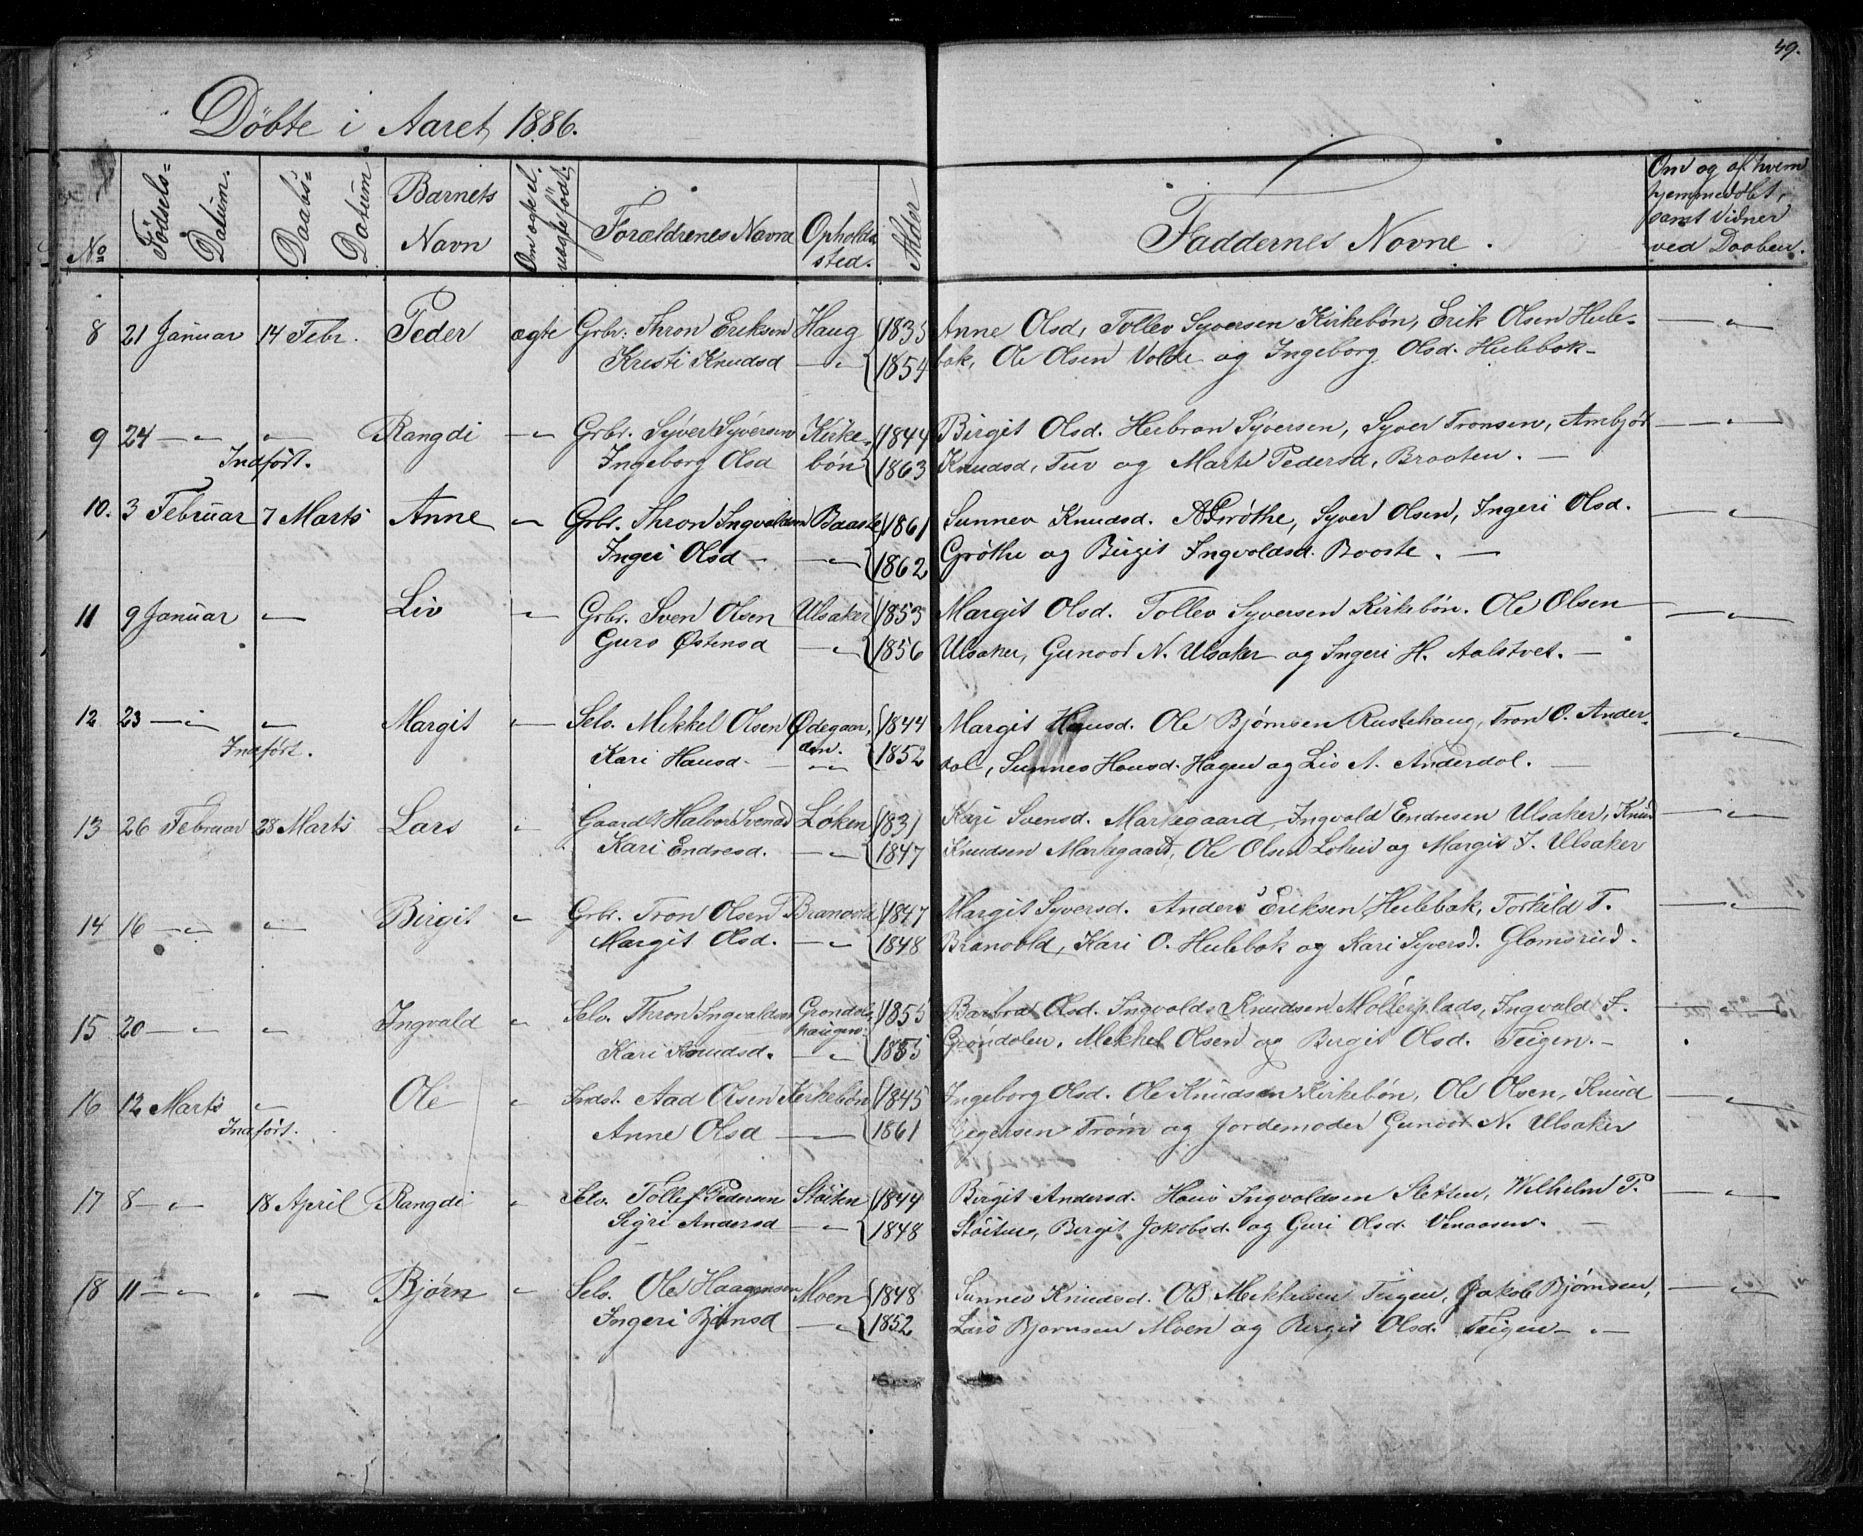 49.
Döbte i Aaret 1886.
No Födsels-Datum. Daabs-Datum Barnets Navn Om ægte el. uægte født. Foraldrenes Navne Opholdssted. Alder Faddernes Navne. Om og af hvem hjemmedøbt, samt Vidner ved Daaben.
8 21 Januar 14 Febr. Peder ægte Grbr. Thron Eriksen Haug 1835 Anne Olsd, Tollev Syversen Kirkebön, Erik Olsen Hule-
Kristi Knudsd —"— 1854 bak, Ole Olsen Volde og Ingeborg Olsd. Hulebak- —"—
9 24 —"— —"— Rangdi —"— Grbr. Syver Syversen Kirke- 1844 Birgit Olsd. Herbran Syversen, Syver Tronsen, Ambjör
Indfört. Ingeborg Olsd bön 1863 Knudsd, Tuv og Marte Pedersd, Braaten. — —"—
10. 3 Februar 7 Marts Anne —"— Grbr. Thron Ingvaldsen Baaste 1861 Sunnev Knudsd. A Gröthe, Syver Olsen, Ingeri Olsd.
Ingeri Olsd —"— 1862 Gröthe og Birgit Ingvaldsd. Baaste. — —"—
11 9 Januar —"— Liv —"— Grbr. Sven Olsen Ulsaker 1853 Margit Olsd. Tollev Syversen Kirkebön. Ole Olsen
Guro Østensd —"— 1856 Ulsaker, Gunvor N. Ulsaker og Ingeri H. Aalstvet. — —"—
12 23 —"— —"— Margit —"— Selv. Mikkel Olsen Ødegaar- 1844 Margit Hansd. Ole Bjørnsen Rustehaug, Tron O. Ander-
Indfört. Kari Hansd. den. —"— 1852 dal, Sunnev Hansd. Hagen og Liv A. Anderdal. — —"—
13 26 Februar 28 Marts Lars —"— Gaardb. Halvor Svensd Löken 1831 Kari Svensd. Markegaard, Ingvald Endresen Ulsaker, Knud
Kari Endresd. —"— 1847 Knudsen Markegaard, Ole Olsen Löken og Margit I. Ulsaker —"—
14 16 —"— —"— Birgit —"— Grbr. Tron Olsen Branvold 1847 Margit Syversd. Anders Eriksen Hulebak, Torkild T.
Margit Olsd. —"— 1848 Branvold, Kari O. Hulebak og Kari Syversd. Glomsrud. —"—
15 20 —"— —"— Ingvald —"— Selv. Thron Ingvaldsen Gröndals- 1855 Barbra Olsd. Ingvald Knudsen Möllerplads, Ingvald I.
Kari Knudsd. haugen —"— 1855 Gröndalen, Mekkel Olsen og Birgit Olsd. Teigen. —
16 12 Marts —"— Ole —"— Indst. Aad Olsen Kirkebön 1845 Ingeborg Olsd. Ole Knudsen Kirkebön, Ole Olsen, Knud
Indfört. Anne Olsd —"— 1861 Gregersen Tröm og Jordemoder Gunvor N. Ulsaker —"—
17 8 —"— 18 April Rangdi —"— Selv. Tollef Pedersen Stöiten 1844 Birgit Andersd. Hans Ingvaldsen Sletten, Wilhelm P.
Sigri Andersd —"— 1848 Stöiten, Birgit Jakobsd. og Guri Olsd. Venaasen. — —"—
18 11 —"— —"— Bjørn —"— Selv. Ole Haagensen Moen 1848 Sunnev Knudsd. Ole Mekkelsen Teigen, Jakob Bjørnsen,
Ingeri Bjørnsd —"— 1852 Lars Bjørnsen Moen og Birgit Olsd. Teigen —"— —"—